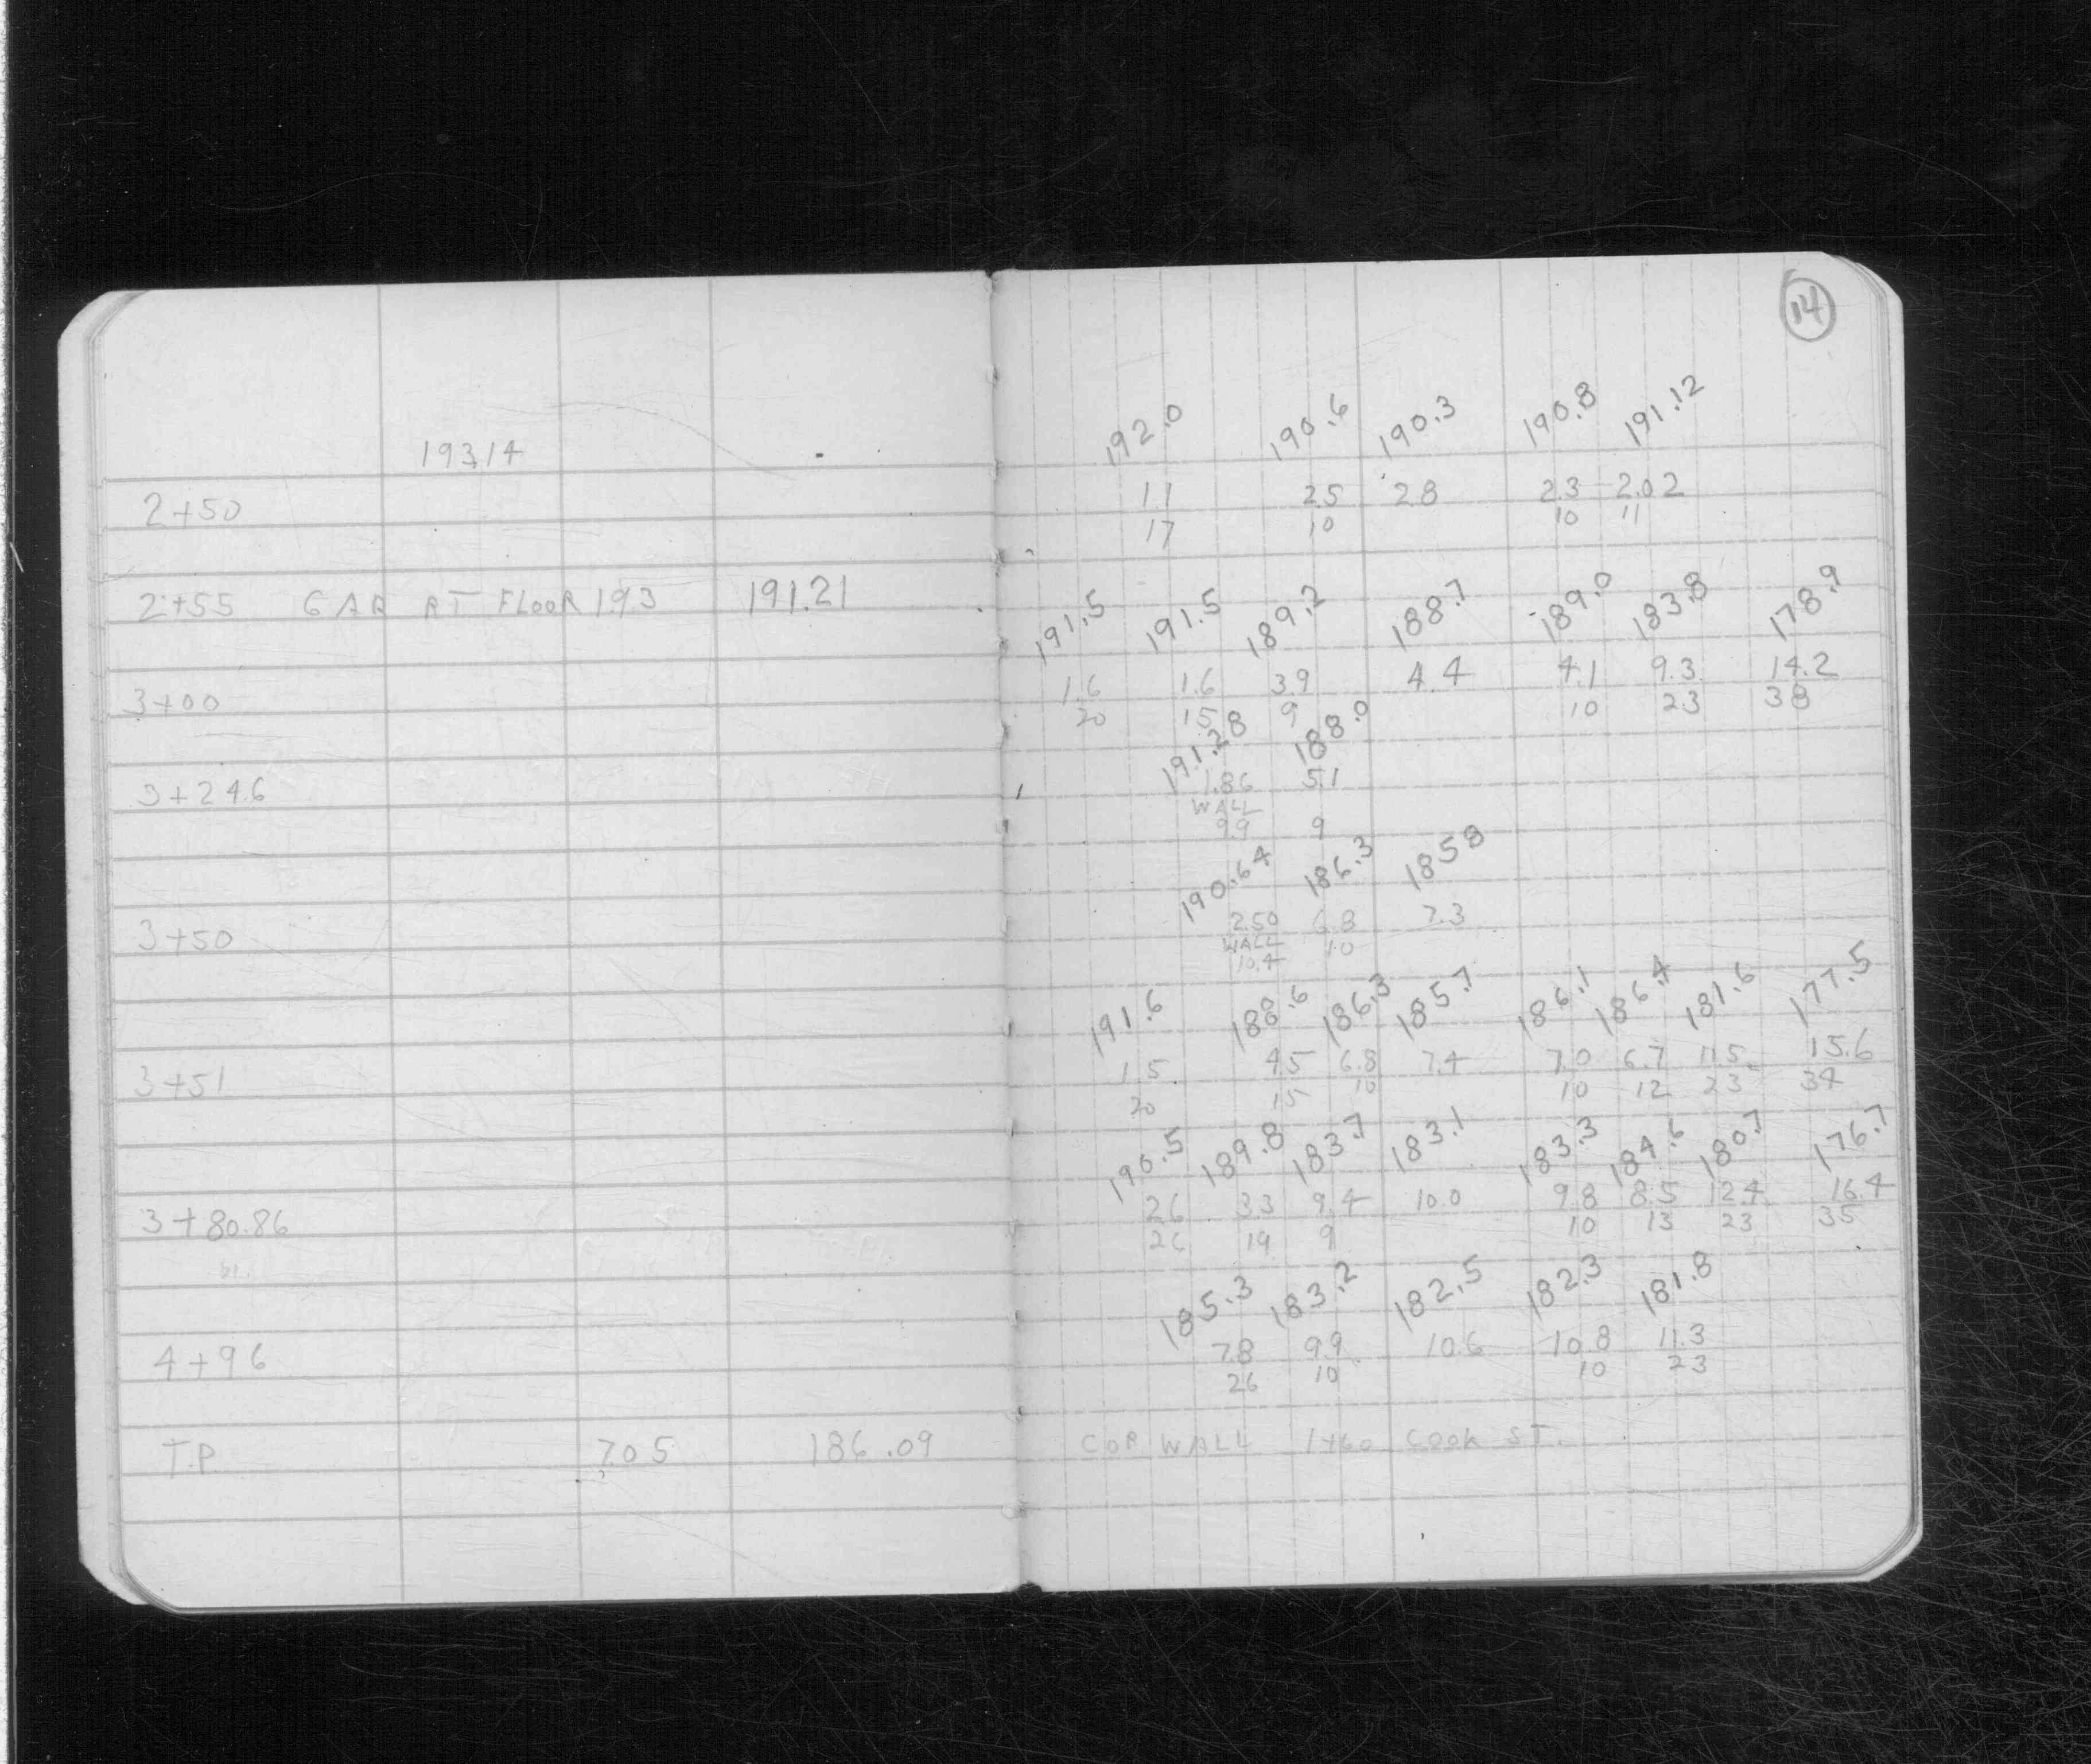 14
192.0 190.6 190.3 190.8 191.12
193.14
2+50 1.1 2.5 2.8 2.3 2.02
17 10 10 11
2+55 GAR RT FLOOR 1.93 191.21
191.5 191.5 189.2 188.7 189.0 183.8 178.9
3+00 1.6 1.6 3.9 4.4 4.1 9.3 14.2
20 15 9 10 23 38
191.28 188.0
3+24.6 1.86 5.1
WALL
9.9 9
190.64 186.3 185.8
3+50 2.50 6.8 7.3
WALL 10
10.4
191.6 188.6 186.3 185.7 186.1 186.4 181.6 177.5
3+51 1.5 4.5 6.8 7.4 7.0 6.7 11.5 15.6
20 15 10 10 12 23 34
190.5 189.8 183.7 183.1 183.3 184.6 180.7 176.7
3+80.86 2.6 3.3 9.4 10.0 9.8 8.5 12.4 16.4
26 19 9 10 13 23 35
185.3 183.2 182.5 182.3 181.8
4+96 7.8 9.9 10.6 10.8 11.3
26 10 10 23
T.P. 7.05 186.09 COR WALL 1+60 COOK ST.